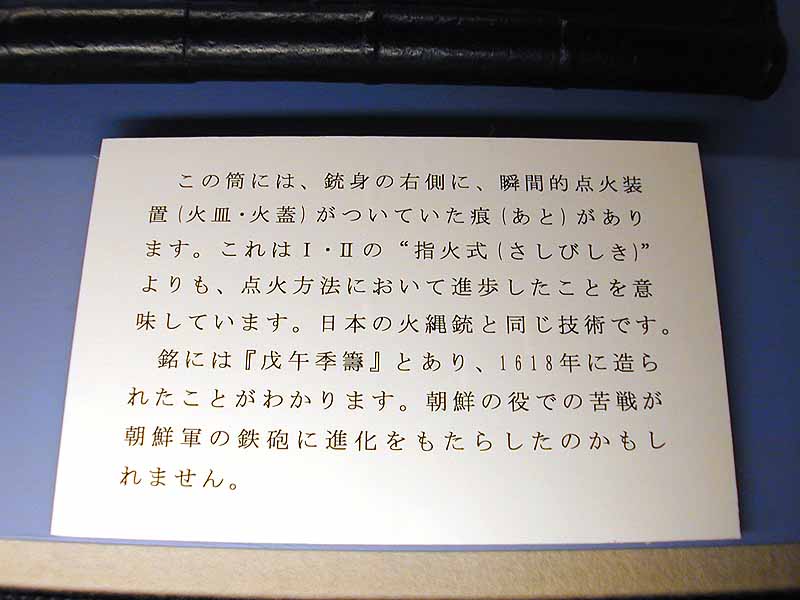 この筒には、銃身の右側に、瞬間的点火装
置(火皿・火蓋)がついていた痕(あと)があり
ます。これはⅠ・Ⅱの“指火式(さしびしき)”
よりも、点火方法において進歩したことを意
味しています。日本の火縄銃と同じ技術です。
銘には『戊午季籌』とあり、1618年に造ら
れたことがわかります。朝鮮の役での苦戦が
朝鮮軍の鉄砲に進化をもたらしたのかもし
れません。